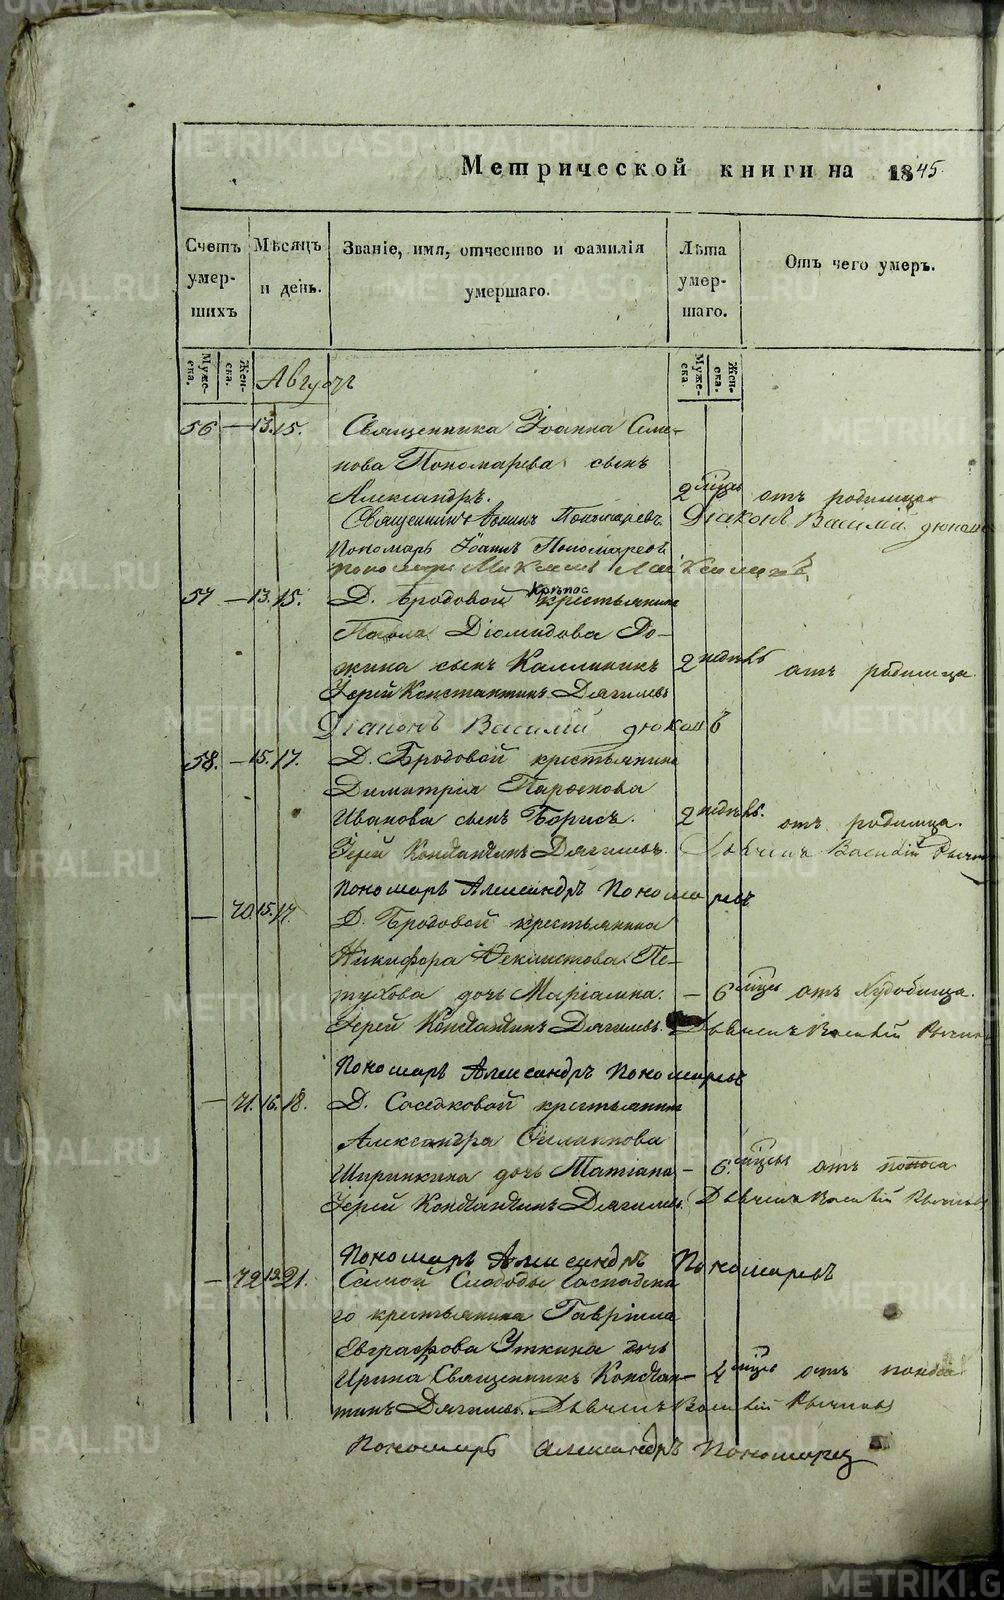 Метрической книги на 1845.
Счетъ умер-шихъ
Мѣсяцъ и день.
Званіе, имя, отчество и фамилія умершаго.
Лѣта умер-шаго.
Отъ чего умеръ.
Муже-ска.
Жен-ска.
Августъ
Муже-ска.
Жен-ска.
56 — 13. 15. Священника Іоанна Семе-
нова Пономарева сынъ
Александръ. 2 мѣсць отъ родимца
Священникъ Іоаннъ Пономаревъ. Діаконъ Василій Дюковъ
Пономарь Іоаннъ Пономаревъ
57 — 13. 15. Д. Бродовой крѣпос крестьянина
Павла Діомидова До-
жина сынъ Каллиникъ 2 недѣль отъ родимца.
Іерей Константинъ Дягилевъ
Діаконъ Василій Дюковъ
58. — 15. 17. Д. Бродовой крестьянина
Димитрія
Иванова сынъ Борисъ. 2 недѣль. отъ родимца.
Іерей Константинъ Дягилевъ. Дьячекъ Василій
Пономарь Александръ Пономаревъ
— 70. 15. 17. Д. Бродовой крестьянина
Никифора Феклистова Пе-
тухова дочь Маріамна. — 6 мѣсць отъ худобища.
Іерей Константинъ Дягилевъ. Дьячекъ Василій
Пономарь Александръ Пономаревъ
— 71. 16. 18. Д. Сосѣдковой крестьянина
Александра
Ширинкина дочь Татіана — 6. мѣсць отъ поноса
Іерей Константинъ Дягилевъ. Дьячекъ Василій
Пономарь Александръ Пономаревъ
— 72 19. 21. Самой Слободы господска-
го крестьянина Гавріила
Евграфова Уткина дочь
Ирина Священникъ Констан- 4 мѣсць отъ поноса
тинъ Дягилевъ. Дьячекъ Василій
Пономарь Александръ Пономаревъ
METRIKI.GASO-URAL.RU